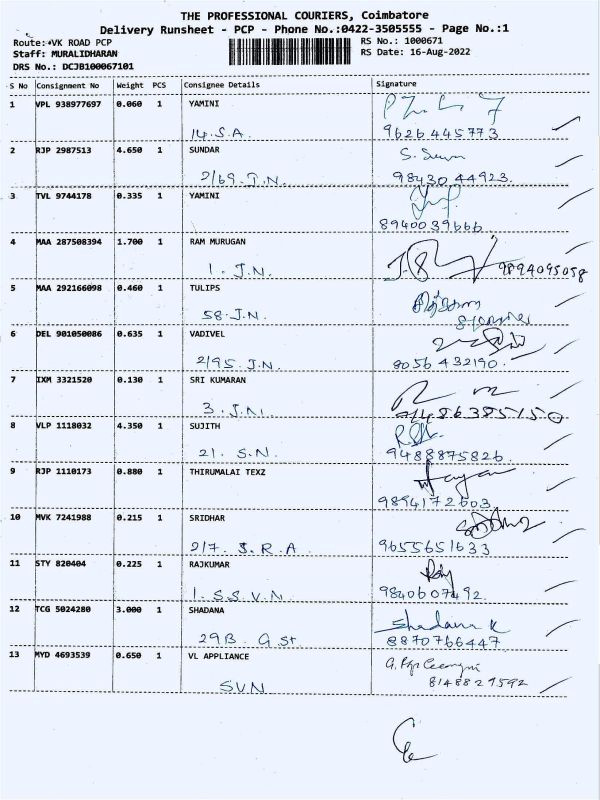 THE PROFESSIONAL COURIERS, Coimbatore
Delivery Runsheet - PCP - Phone No.:0422-3505555 - Page No.:1
Route:+VK ROAD PCP RS No.: 1000671
Staff: MURALIDHARAN RS Date: 16-Aug-2022
DRS No.: DCJB100067101
S No Consignment No Weight PCS Consignee Details Signature
1 VPL 938977697 0.060 1 YAMINI
14.S.A. 9626445773
2 RJP 2987513 4.650 1 SUNDAR
2/69.J.N. 98430 44923.
3 TVL 9744178 0.335 1 YAMINI
8940039666
4 MAA 287508394 1.700 1 RAM MURUGAN
1. J.N. 9894095058
5 MAA 292166098 0.460 1 TULIPS
58.J.N.
6 DEL 901050086 0.635 1 VADIVEL
2/95 J.N. 8056 432190.
7 IXM 3321520 0.130 1 SRI KUMARAN
3. J.N. 7486385150
8 VLP 1118032 4.350 1 SUJITH
21. S.N. 9488875826.
9 RJP 1110173 0.880 1 THIRUMALAI TEXZ
9894172603
10 MVK 7241988 0.215 1 SRIDHAR
2/7. S.R.A 9655651633
11 STY 820404 0.225 1 RAJKUMAR
1. S.S.V.N. 9840607492
12 TCG 5024280 3.000 1 SHADANA Shadana K
29B. G.St 8870766447
13 MYD 4693539 0.650 1 VL APPLIANCE
S.V.N 8148827592